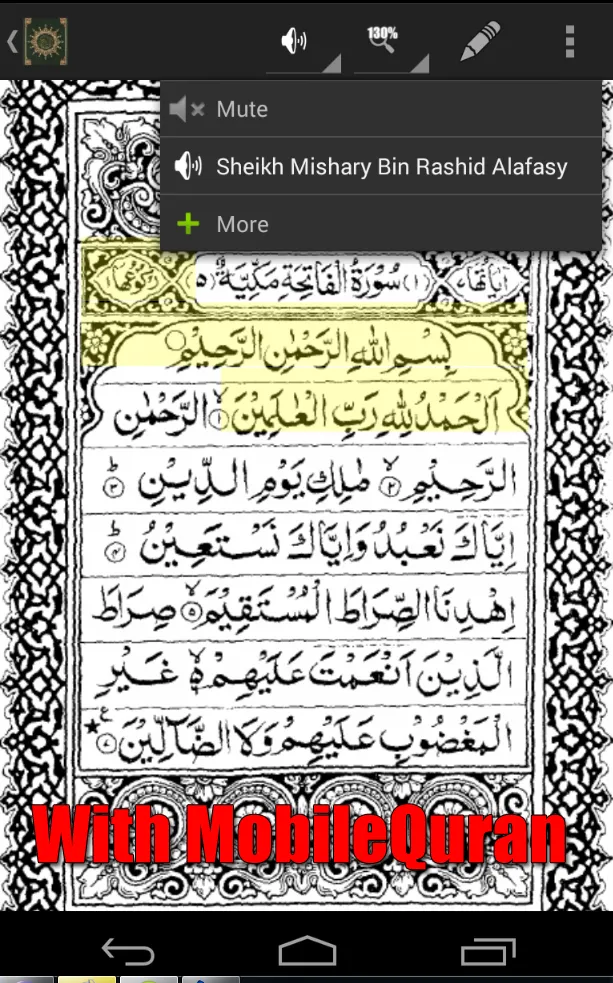 130%
Mute
Sheikh Mishary Bin Rashid Alafasy
More
اٰيَاتُهَا ٧ (١) سُوْرَةُ الْفَاتِحَةِ مَكِّيَّةٌ (٥) رُكُوْعُهَا ١
بِسْمِ اللّٰهِ الرَّحْمٰنِ الرَّحِيْمِ
اَلْحَمْدُ لِلّٰهِ رَبِّ الْعٰلَمِيْنَ ۙ﴿١﴾ الرَّحْمٰنِ
الرَّحِيْمِ ۙ﴿٢﴾ مٰلِكِ يَوْمِ الدِّيْنِ ؕ﴿٣﴾
اِيَّاكَ نَعْبُدُ وَاِيَّاكَ نَسْتَعِيْنُ ؕ﴿٤﴾
اِهْدِنَا الصِّرَاطَ الْمُسْتَقِيْمَ ۙ﴿٥﴾ صِرَاطَ
الَّذِيْنَ اَنْعَمْتَ عَلَيْهِمْ ۙ۬ غَيْرِ
الْمَغْضُوْبِ عَلَيْهِمْ وَلَا الضَّآلِّيْنَ ﴿٧﴾ ع
With MobileQuran